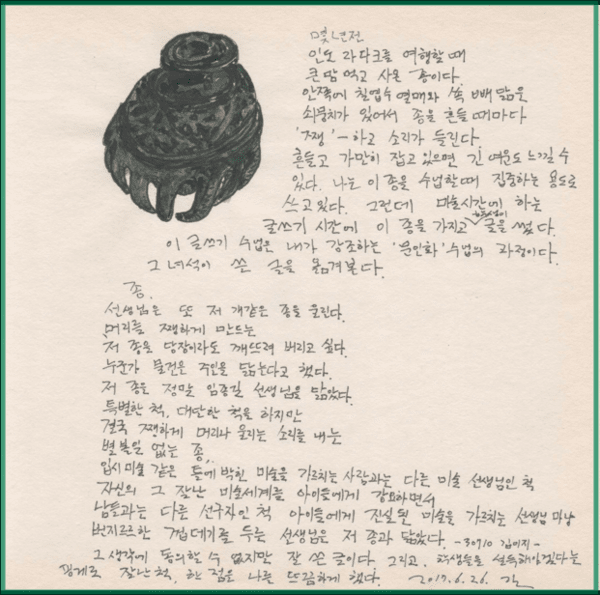 몇년전
인도 라다크를 여행할 때
큰맘 먹고 사온 종이다.
안쪽에 칠엽수 열매와 쏙 빼 닮은
쇠뭉치가 있어서 종을 흔들 때마다
'쨍' - 하고 소리가 들린다
흔들고 가만히 잡고 있으면 긴 여운도 느낄 수
있다. 나는 이 종을 수업할 때 집중하는 용도로
쓰고 있다. 그런데 미술시간에 하는
글쓰기 시간에 이 종을 가지고 글을 썼다.
이 글쓰기 수업은 내가 강조하는 '문인화' 수업의 과정이다.
그 녀석이 쓴 글을 옮겨본다.
종.
선생님은 또 저 개같은 종을 울린다.
머리를 쨍하게 만드는
저 종을 당장이라도 깨뜨려 버리고 싶다.
누군가 물건은 주인을 닮는다고 했다.
저 종은 정말 임종길 선생님을 닮았다.
특별한 척, 대단한 척을 하지만
결국 쨍하게 머리나 울리는 소리를 내는
별볼일 없는 종.
입시미술 같은 틀에 박힌 미술을 가르치는 사람과는 다른 미술 선생님인 척
자신의 그 잘난 미술세계를 아이들에게 강요하면서
남들과는 다른 선구자인 척 아이들에게 진실된 미술을 가르치는 선생님 마냥
번지르르한 껍데기를 두른 선생님은 저 종과 닮았다. -30710
그 생각에 동의할 수 없지만 잘 쓴 글이다. 그리고, 학생들을 설득해야겠다는
핑계로 잘난 척, 한 점은 나를 뜨끔하게 했다. 2017.6.26.